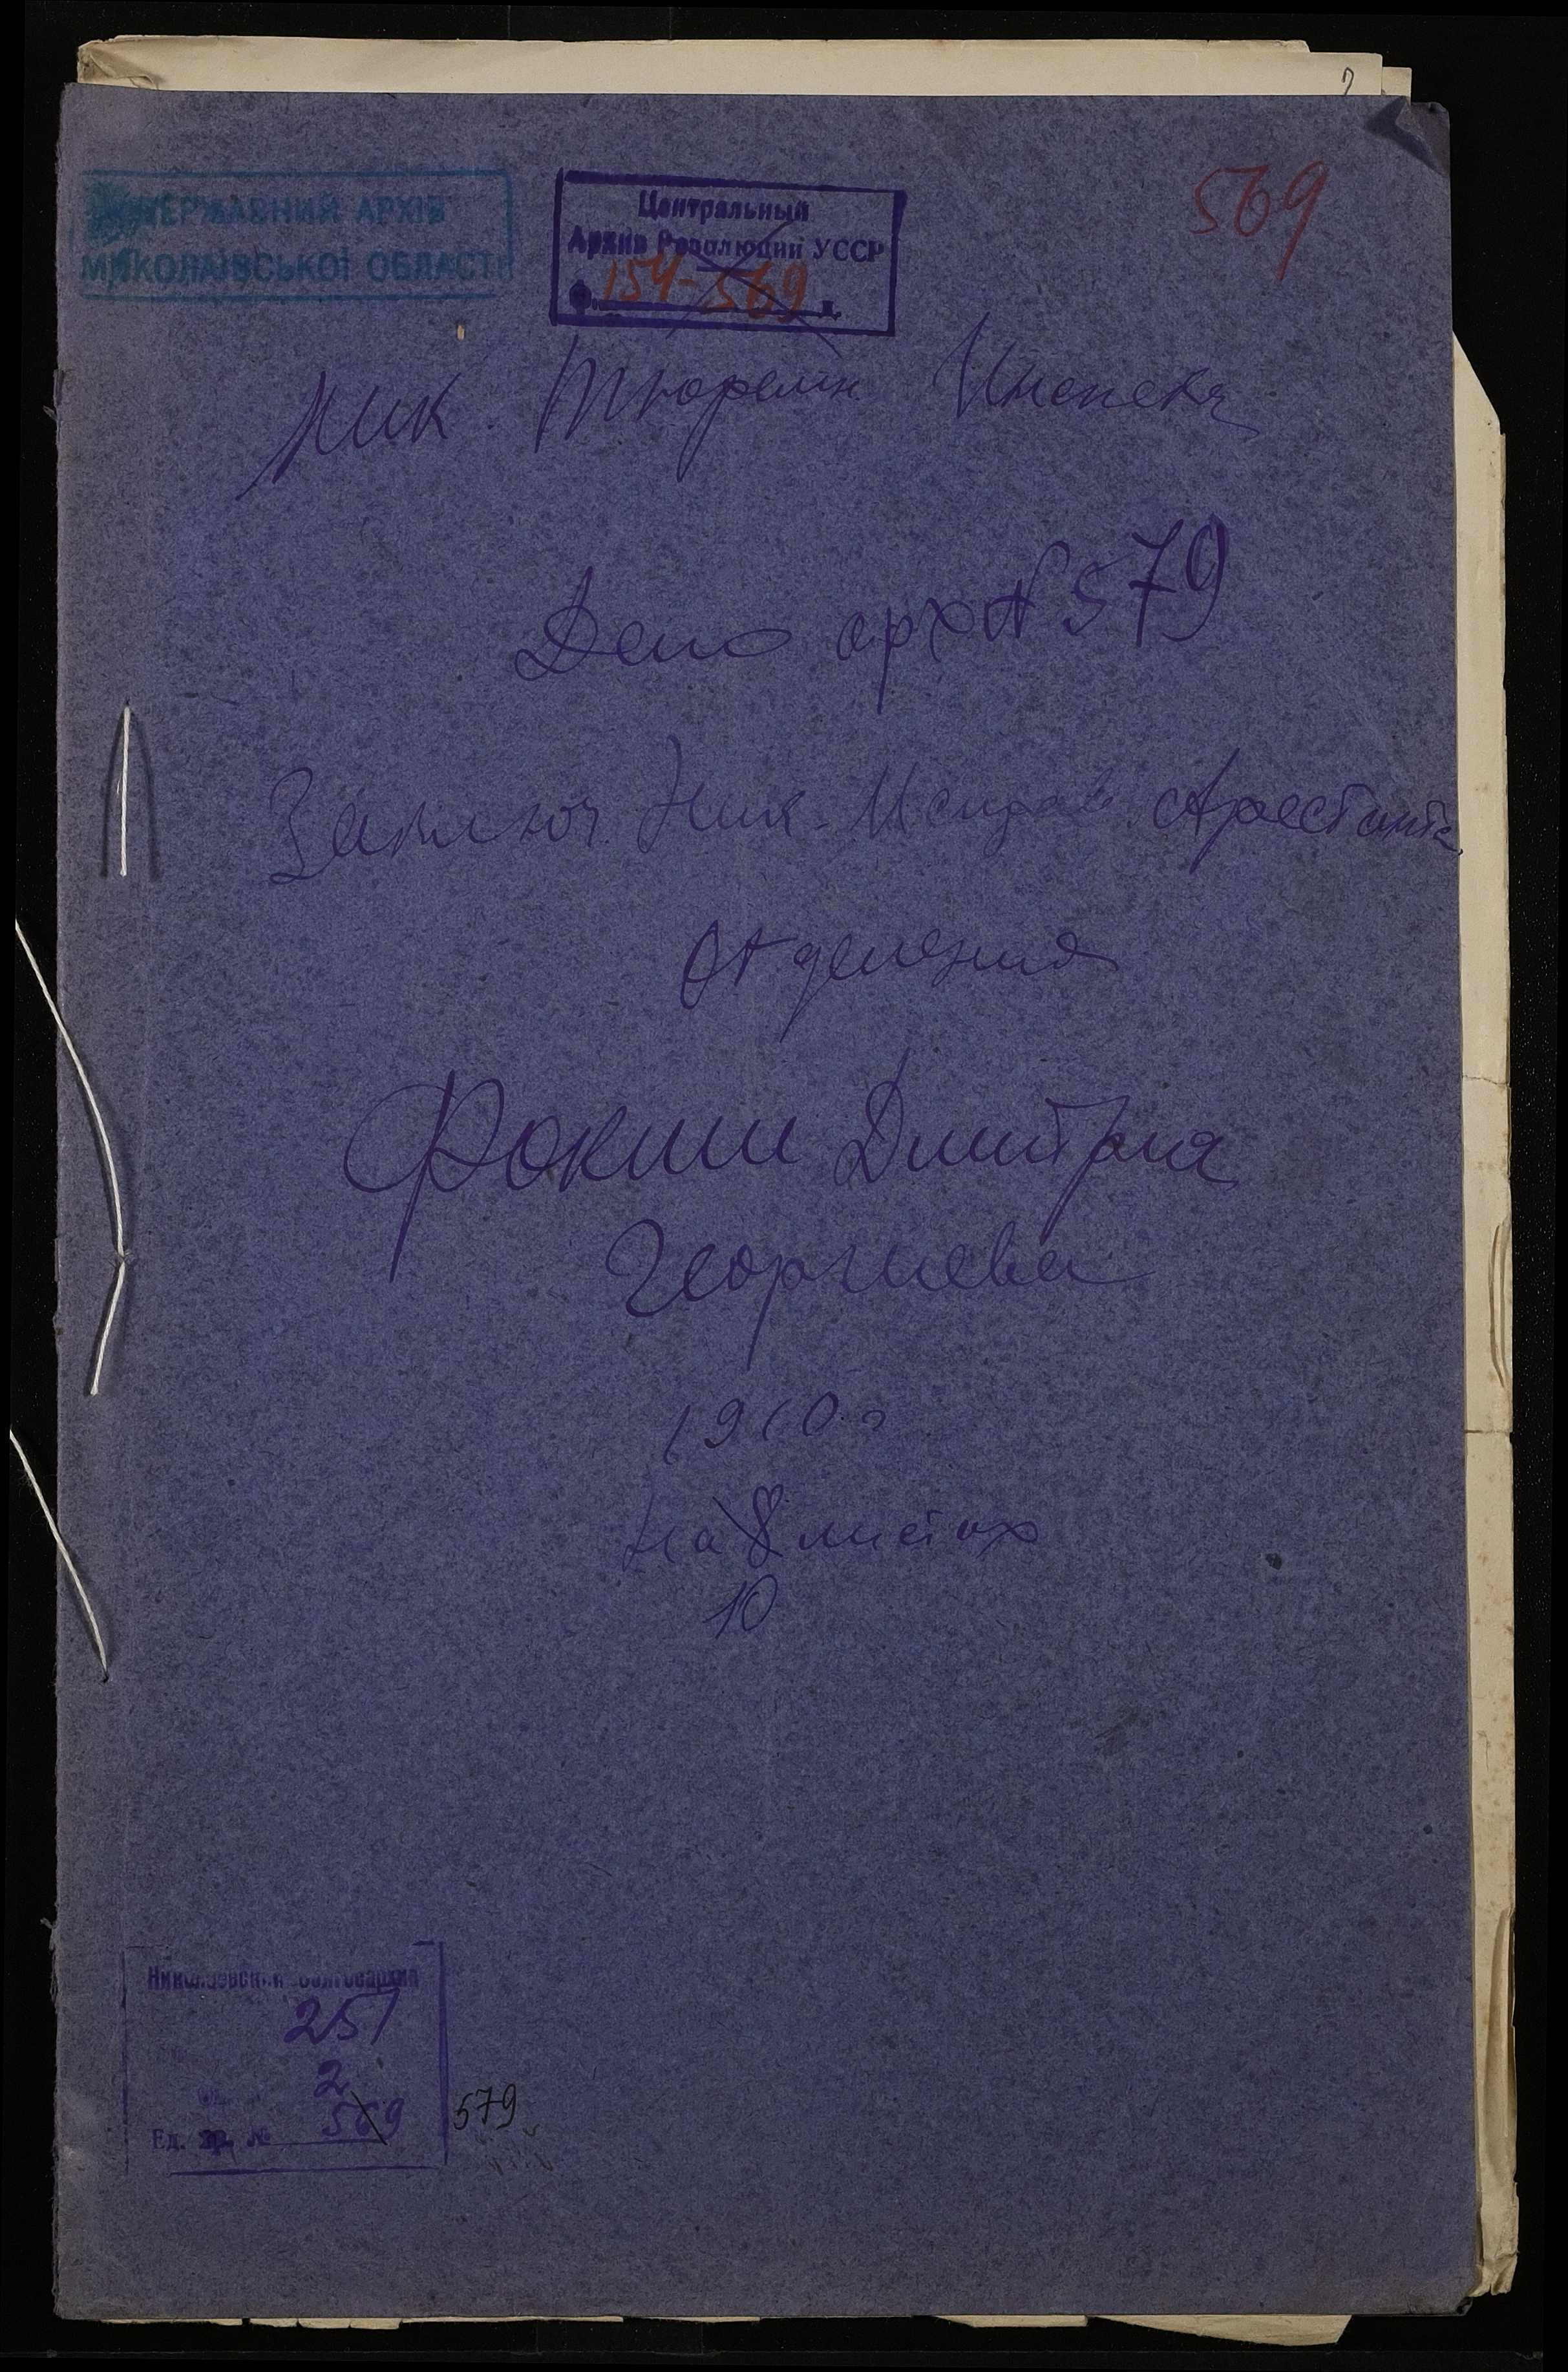 569
ДЕРЖАВНИЙ АРХІВ
МИКОЛАЇВСЬКОЇ ОБЛАСТІ
Центральный
Архив Революции УССР
Ф. 154-569 д.
Ник. Тюремн. Инспекц.
Дело арх № 579
Заключ. Ник. Исправ. Арестантс.
Отделения
Фокши Дмитрия
Георгиева
1910 г
На 8 листах
10
Николаевский
251
2
Ед. хр. № 569 579